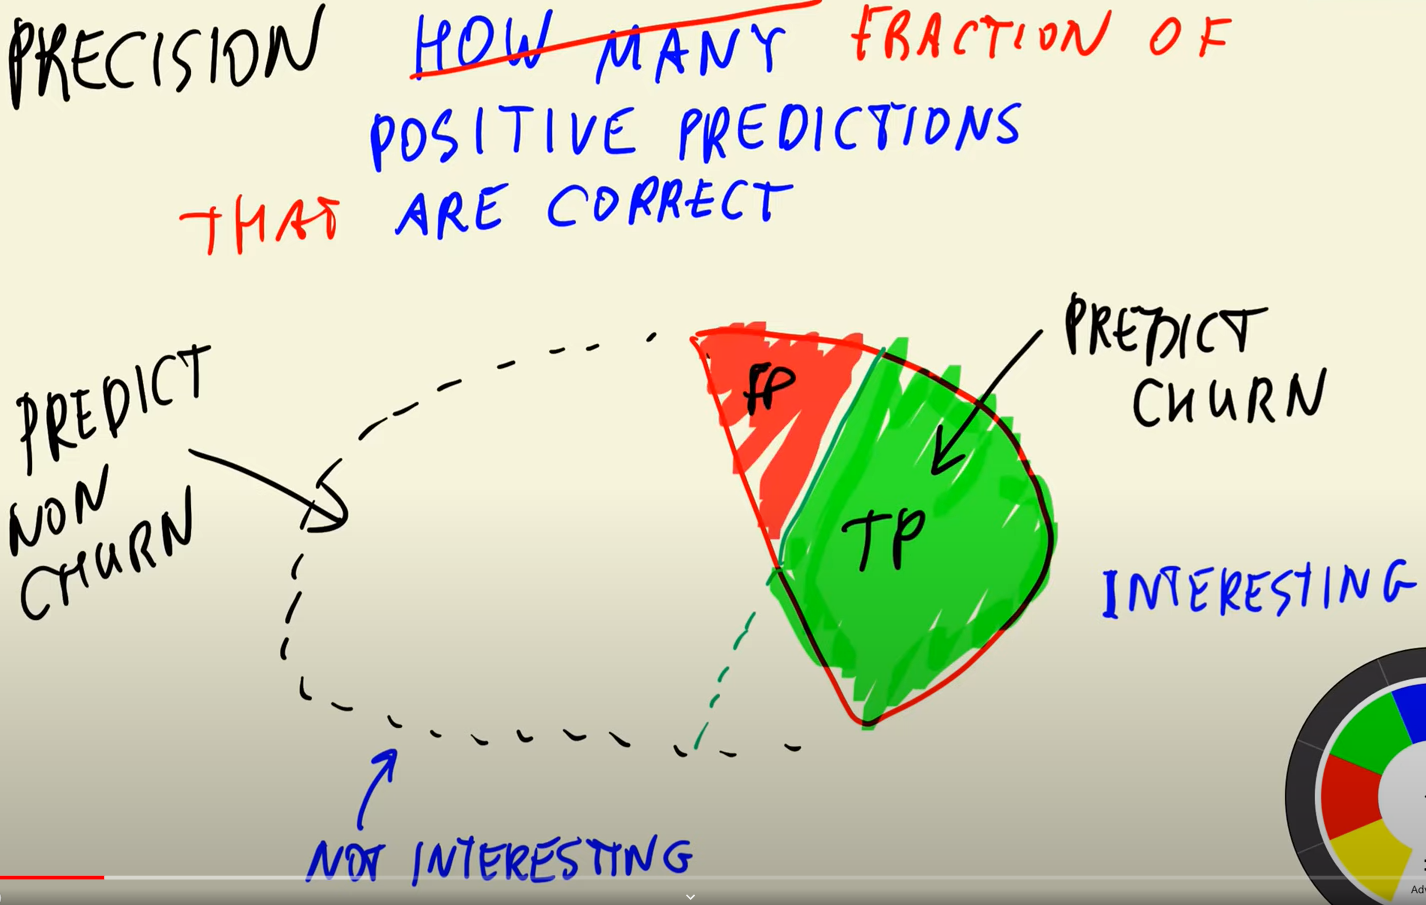 PRECISION HOW MANY FRACTION OF
POSITIVE PREDICTIONS
THAT ARE CORRECT
PREDICT
NON
CHURN
FP
TP
PREDICT
CHURN
INTERESTING
NOT INTERESTING
Adv